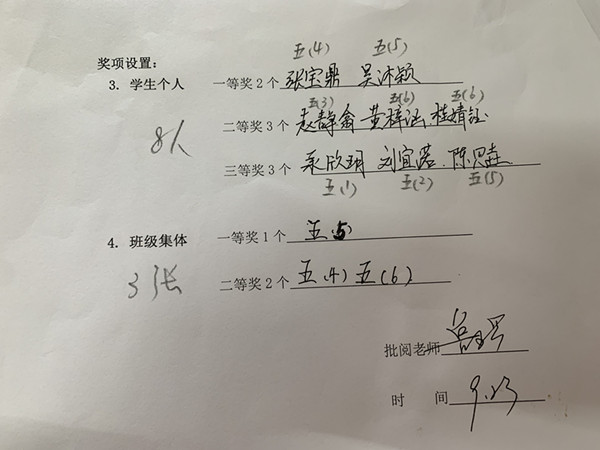 五(4) 五(5)
奖项设置:
3. 学生个人 一等奖2个 张宝鼎 吴沐颖
五(3) 五(6) 五(6)
8人 二等奖3个 黄梓涵
三等奖3个 刘宜诺
五(1) 五(2) 五(5)
4. 班级集体 一等奖1个 五(5)
3张 二等奖2个 五(4) 五(6)
批阅老师
时 间 9.23